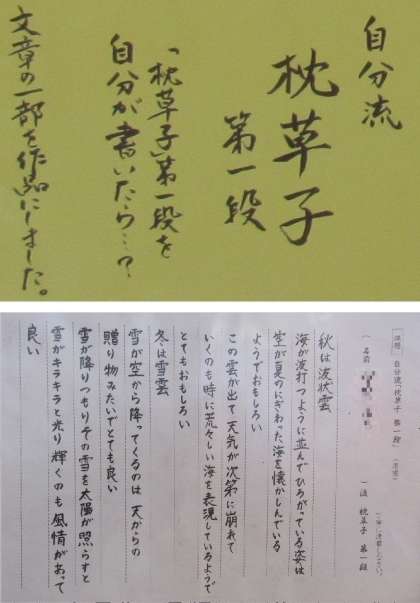 自分流
枕草子
第一段
「枕草子」第一段を
自分が書いたら…？
文章の一部を作品にしました。
課題 自分流「枕草子 第一段」
名前
流 枕草子 第一段
秋は 波状雲
海が波打つように並んでひろがっている姿は
空が夏のにぎわった海を懐かしんでいる
ようでおもしろい
この雲が出て 天気が次第に崩れて
いくのも時に荒々しい海を表現しているようで
とてもおもしろい
冬は雪雲
雪が空から降ってくるのは 天からの
贈り物みたいでとても良い
雪が降りつもりその雪を太陽が照らすと
雪がキラキラと光り輝くのも風情があって
良い